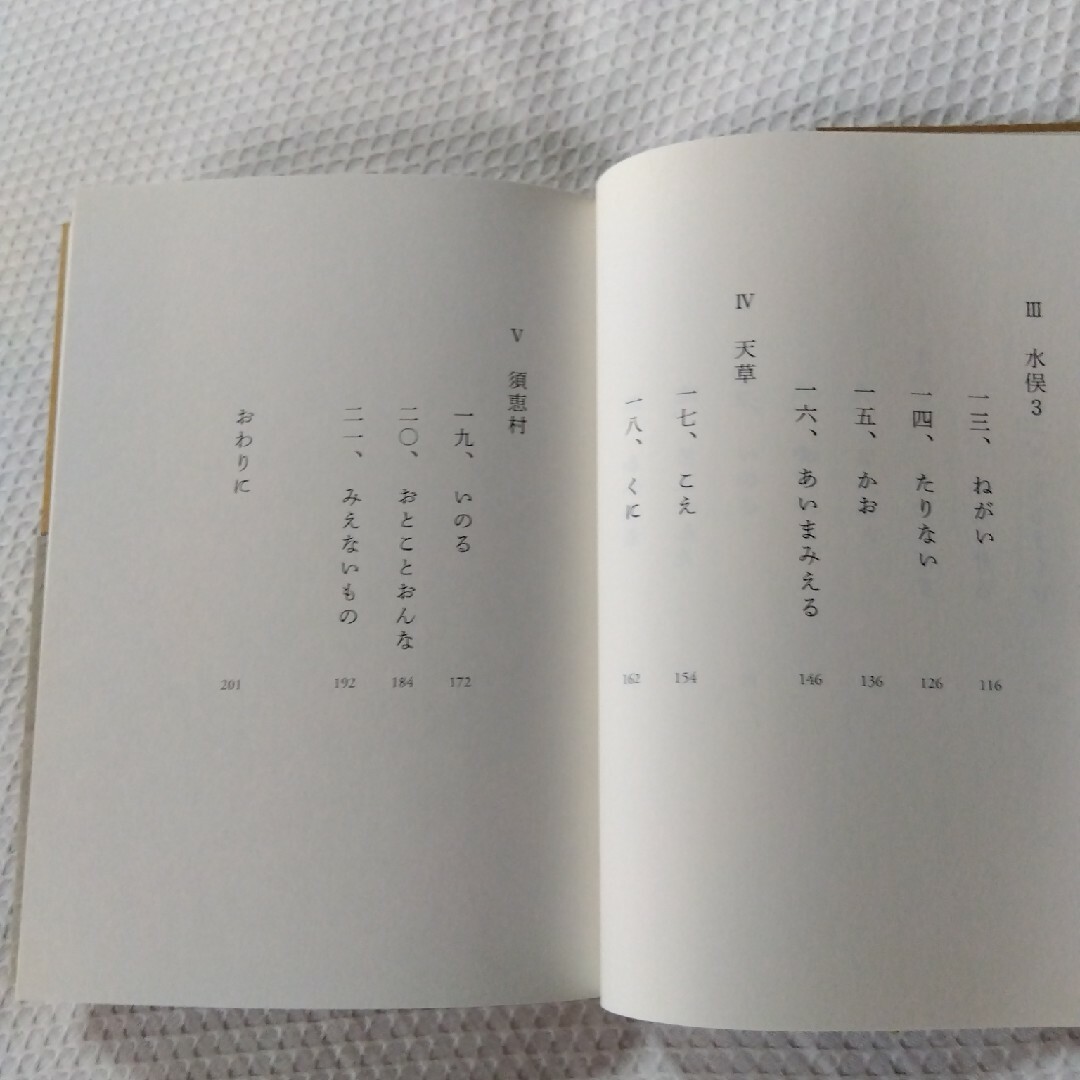 Ⅲ 水俣3
一三、ねがい 116
一四、たりない 126
一五、かお 136
一六、あいまみえる 146
Ⅳ 天草
一七、こえ 154
一八、くに 162
Ⅴ 須恵村
一九、いのる 172
二〇、おとことおんな 184
二一、みえないもの 192
おわりに 201